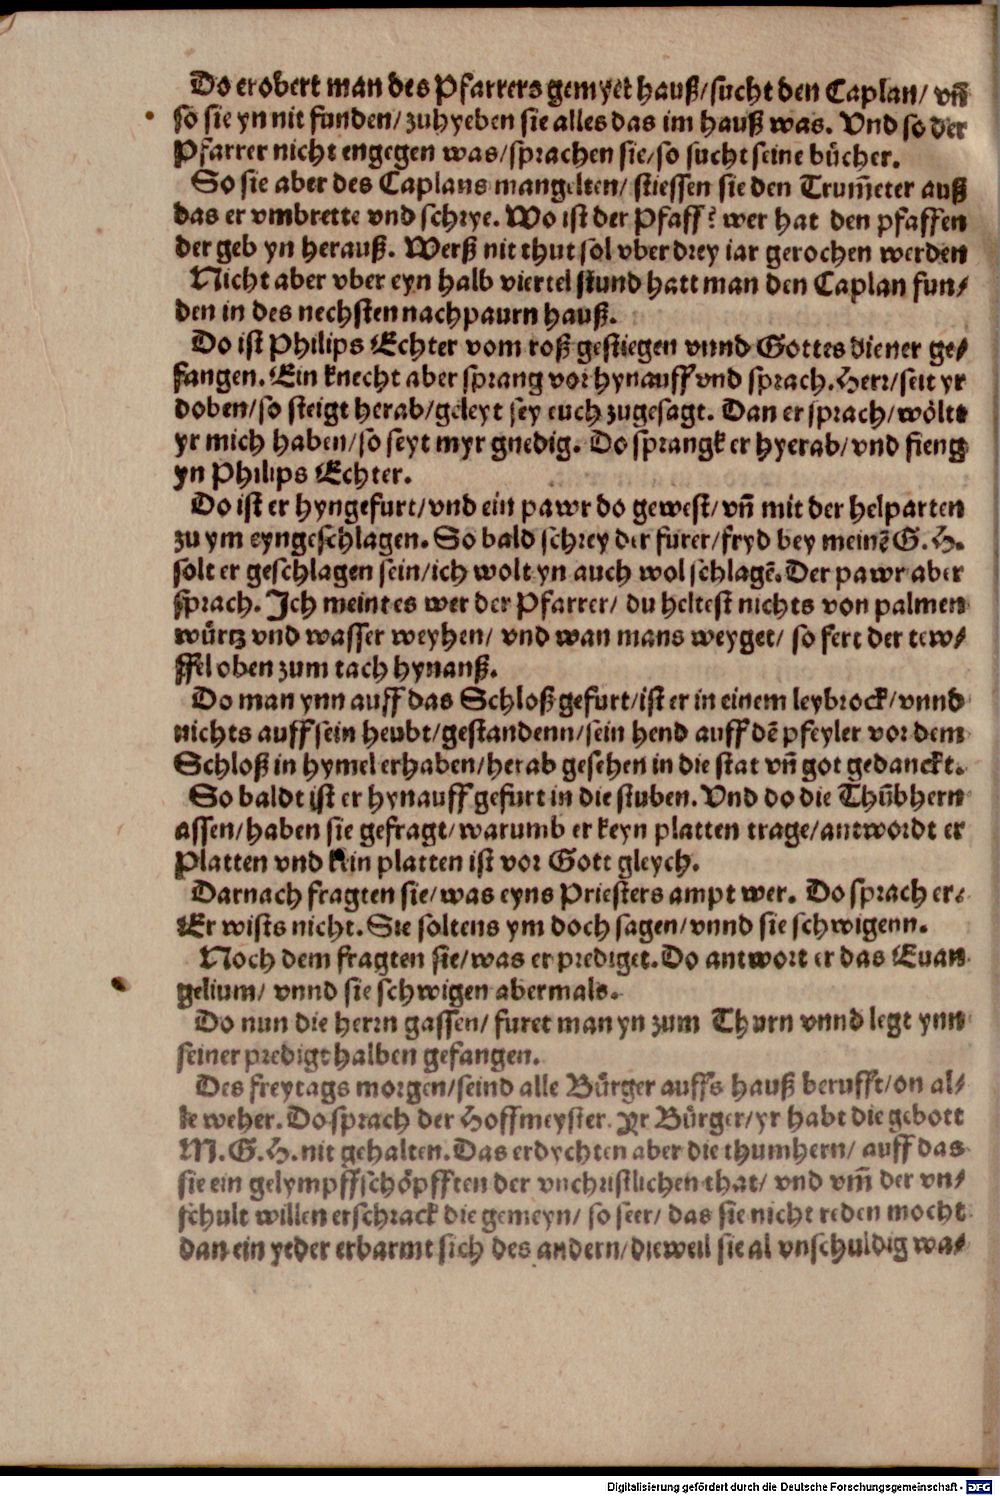 Do erobert man des Pfarrers gemyet hauß/sucht den Caplan/ vñ
so sie yn nit funden/ zuhyeben sie alles das im hauß was. Vnd so der
Pfarrer nicht engegen was/sprachen sie/so sucht seine bůcher.
So sie aber des Caplans mangelten/ stiessen sie den Trum̃eter auß
das er vmbrette vnd schrye. Wo ist der Pfaff? wer hat den pfaffen
der geb yn herauß. Werß nit thut sol vber drey iar gerochen werden
Nicht aber vber eyn halb viertel stund hatt man den Caplan fun/
den in des nechsten nachpaurn hauß.
Do ist Philips Echter vom roß gestiegen vnnd Gottes diener ge/
fangen. Ein knecht aber sprang vor hynauff vnd sprach. Herr/seit yr
doben/so steigt herab/geleyt sey euch zugesagt. Dan er sprach/wölte
yr mich haben/so seyt myr gnedig. Do sprangk er hyerab/vnd fieng
yn Philips Echter.
Do ist er hyngefurt/vnd ein pawr do gewest/vñ mit der helparten
zu ym eyngeschlagen. So bald schrey der furer/fryd bey meinẽ G. H.
solt er geschlagen sein/ich wolt yn auch wol schlagẽ. Der pawr aber
sprach. Ich meint es wer der Pfarrer/ du heltest nichts von palmen
würtz vnd wasser weyhen/ vnd wan mans weyget/ so fert der tew/
ffel oben zum tach hynanß.
Do man ynn auff das Schloß gefurt/ist er in einem leybrock/vnnd
nichts auff sein heubt/gestandenn/sein hend auff dẽ pfeyler vor dem
Schloß in hymel erhaben/herab gesehen in die stat vñ got gedanckt.
So baldt ist er hynauff gefurt in die stuben. Vnd do die Thůbhern
assen/haben sie gefragt/warumb er keyn platten trage/antwordt er
Platten vnd kein platten ist vor Gott gleych.
Darnach fragten sie/was eyns Priesters ampt wer. Do sprach er/
Er wists nicht. Sie soltens ym doch sagen/vnnd sie schwigenn.
Noch dem fragten sie/was er prediget. Do antwort er das Euan
gelium/ vnnd sie schwigen abermals.
Do nun die herrn gassen/ furet man yn zum Thurn vnnd legt ynn
seiner predigt halben gefangen.
Des freytags morgen/seind alle Bürger auffs hauß berufft/on al/
le weher. Do sprach der Hoffmeyster. Yr Bürger/yr habt die gebott
M. G. H. nit gehalten. Das erdychten aber die thumhern/ auff das
sie ein gelympff schöpfften der vnchristlichen that/ vnd vm̃ der vn/
schult willen erschrack die gemeyn/ so seer/ das sie nicht reden mocht
dan ein yeder erbarmt sich des andern/dieweil sie al vnschuldig wa/
Digitalisierung gefördert durch die Deutsche Forschungsgemeinschaft - DFG